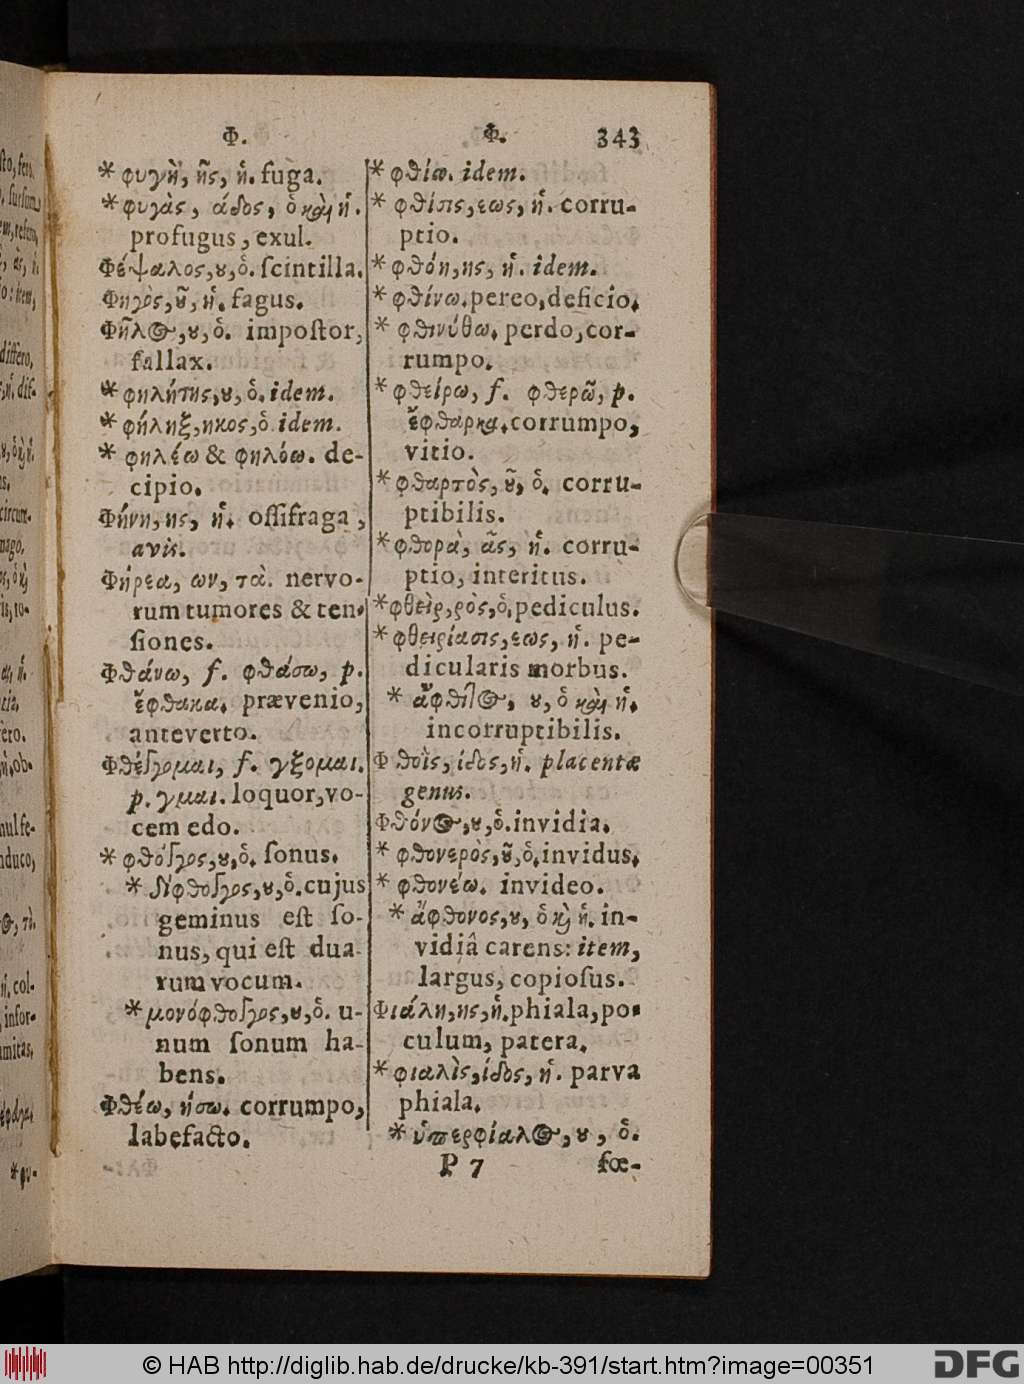 Φ.
* φυγὴ, ῆς, ἡ. fuga.
* φυγὰς, άδος, ὁ καὶ ἡ.
profugus, exul.
Φέψαλος, ȣ, ὁ. ſcintilla.
Φηγὸς, ȣ῀, ἡ. fagus.
Φῆλος, ȣ, ὁ. impoſtor,
fallax.
* φηλήτης, ȣ, ὁ. idem.
* φήληξ, ηκος, ὁ idem.
* φηλέω & φηλόω. de-
cipio.
Φήνη, ης, ἡ. oſſifraga,
avis.
Φήρεα, ων, τὰ. nervo-
rum tumores & ten-
ſiones.
Φθάνω, f. φθάσω, p.
ἔφθακα. prævenio,
anteverto.
Φθέγγομαι, f. γξομαι.
p. γμαι. loquor, vo-
cem edo.
* φθόγγος, ȣ, ὁ. ſonus.
* δίφθογγος, ȣ, ὁ. cujus
geminus eſt ſo-
nus, qui eſt dua-
rum vocum.
* μονόφθογγος, ȣ, ὁ. u-
num ſonum ha-
bens.
Φθέω, ήσω. corrumpo,
labefacto.
Φ. 343
* φθίω. idem.
* φθίσις, εως, ἡ. corru-
ptio.
* φθόη, ης, ἡ. idem.
* φθίνω. pereo, deficio.
* φθινύθω. perdo, cor-
rumpo.
* φθείρω, f. φθερῶ, p.
ἔφθαρκα. corrumpo,
vitio.
* φθαρτὸς, ȣ῀, ὁ. corru-
ptibilis.
* φθορὰ, ᾶς, ἡ. corru-
ptio, interitus.
* φθεὶρ, ρὸς, ὁ. pediculus.
* φθειρίασις, εως, ἡ. pe-
dicularis morbus.
* ἄφθιτος, ȣ, ὁ καὶ ἡ.
incorruptibilis.
Φθοῒς, ίδος, ἡ. placentæ
genus.
Φθόνος, ȣ, ὁ. invidia.
* φθονερὸς, ȣ῀, ὁ. invidus.
* φθονέω. invideo.
* ἄφθονος, ȣ, ὁ καὶ ἡ. in-
vidiâ carens: item,
largus, copioſus.
Φιάλη, ης, ἡ. phiala, po-
culum, patera.
* φιαλὶς, ίδος, ἡ. parva
phiala.
* ὑπερφίαλος, ȣ, ὁ.
P 7 fœ-
© HAB http://diglib.hab.de/drucke/kb-391/start.htm?image=00351
DFG